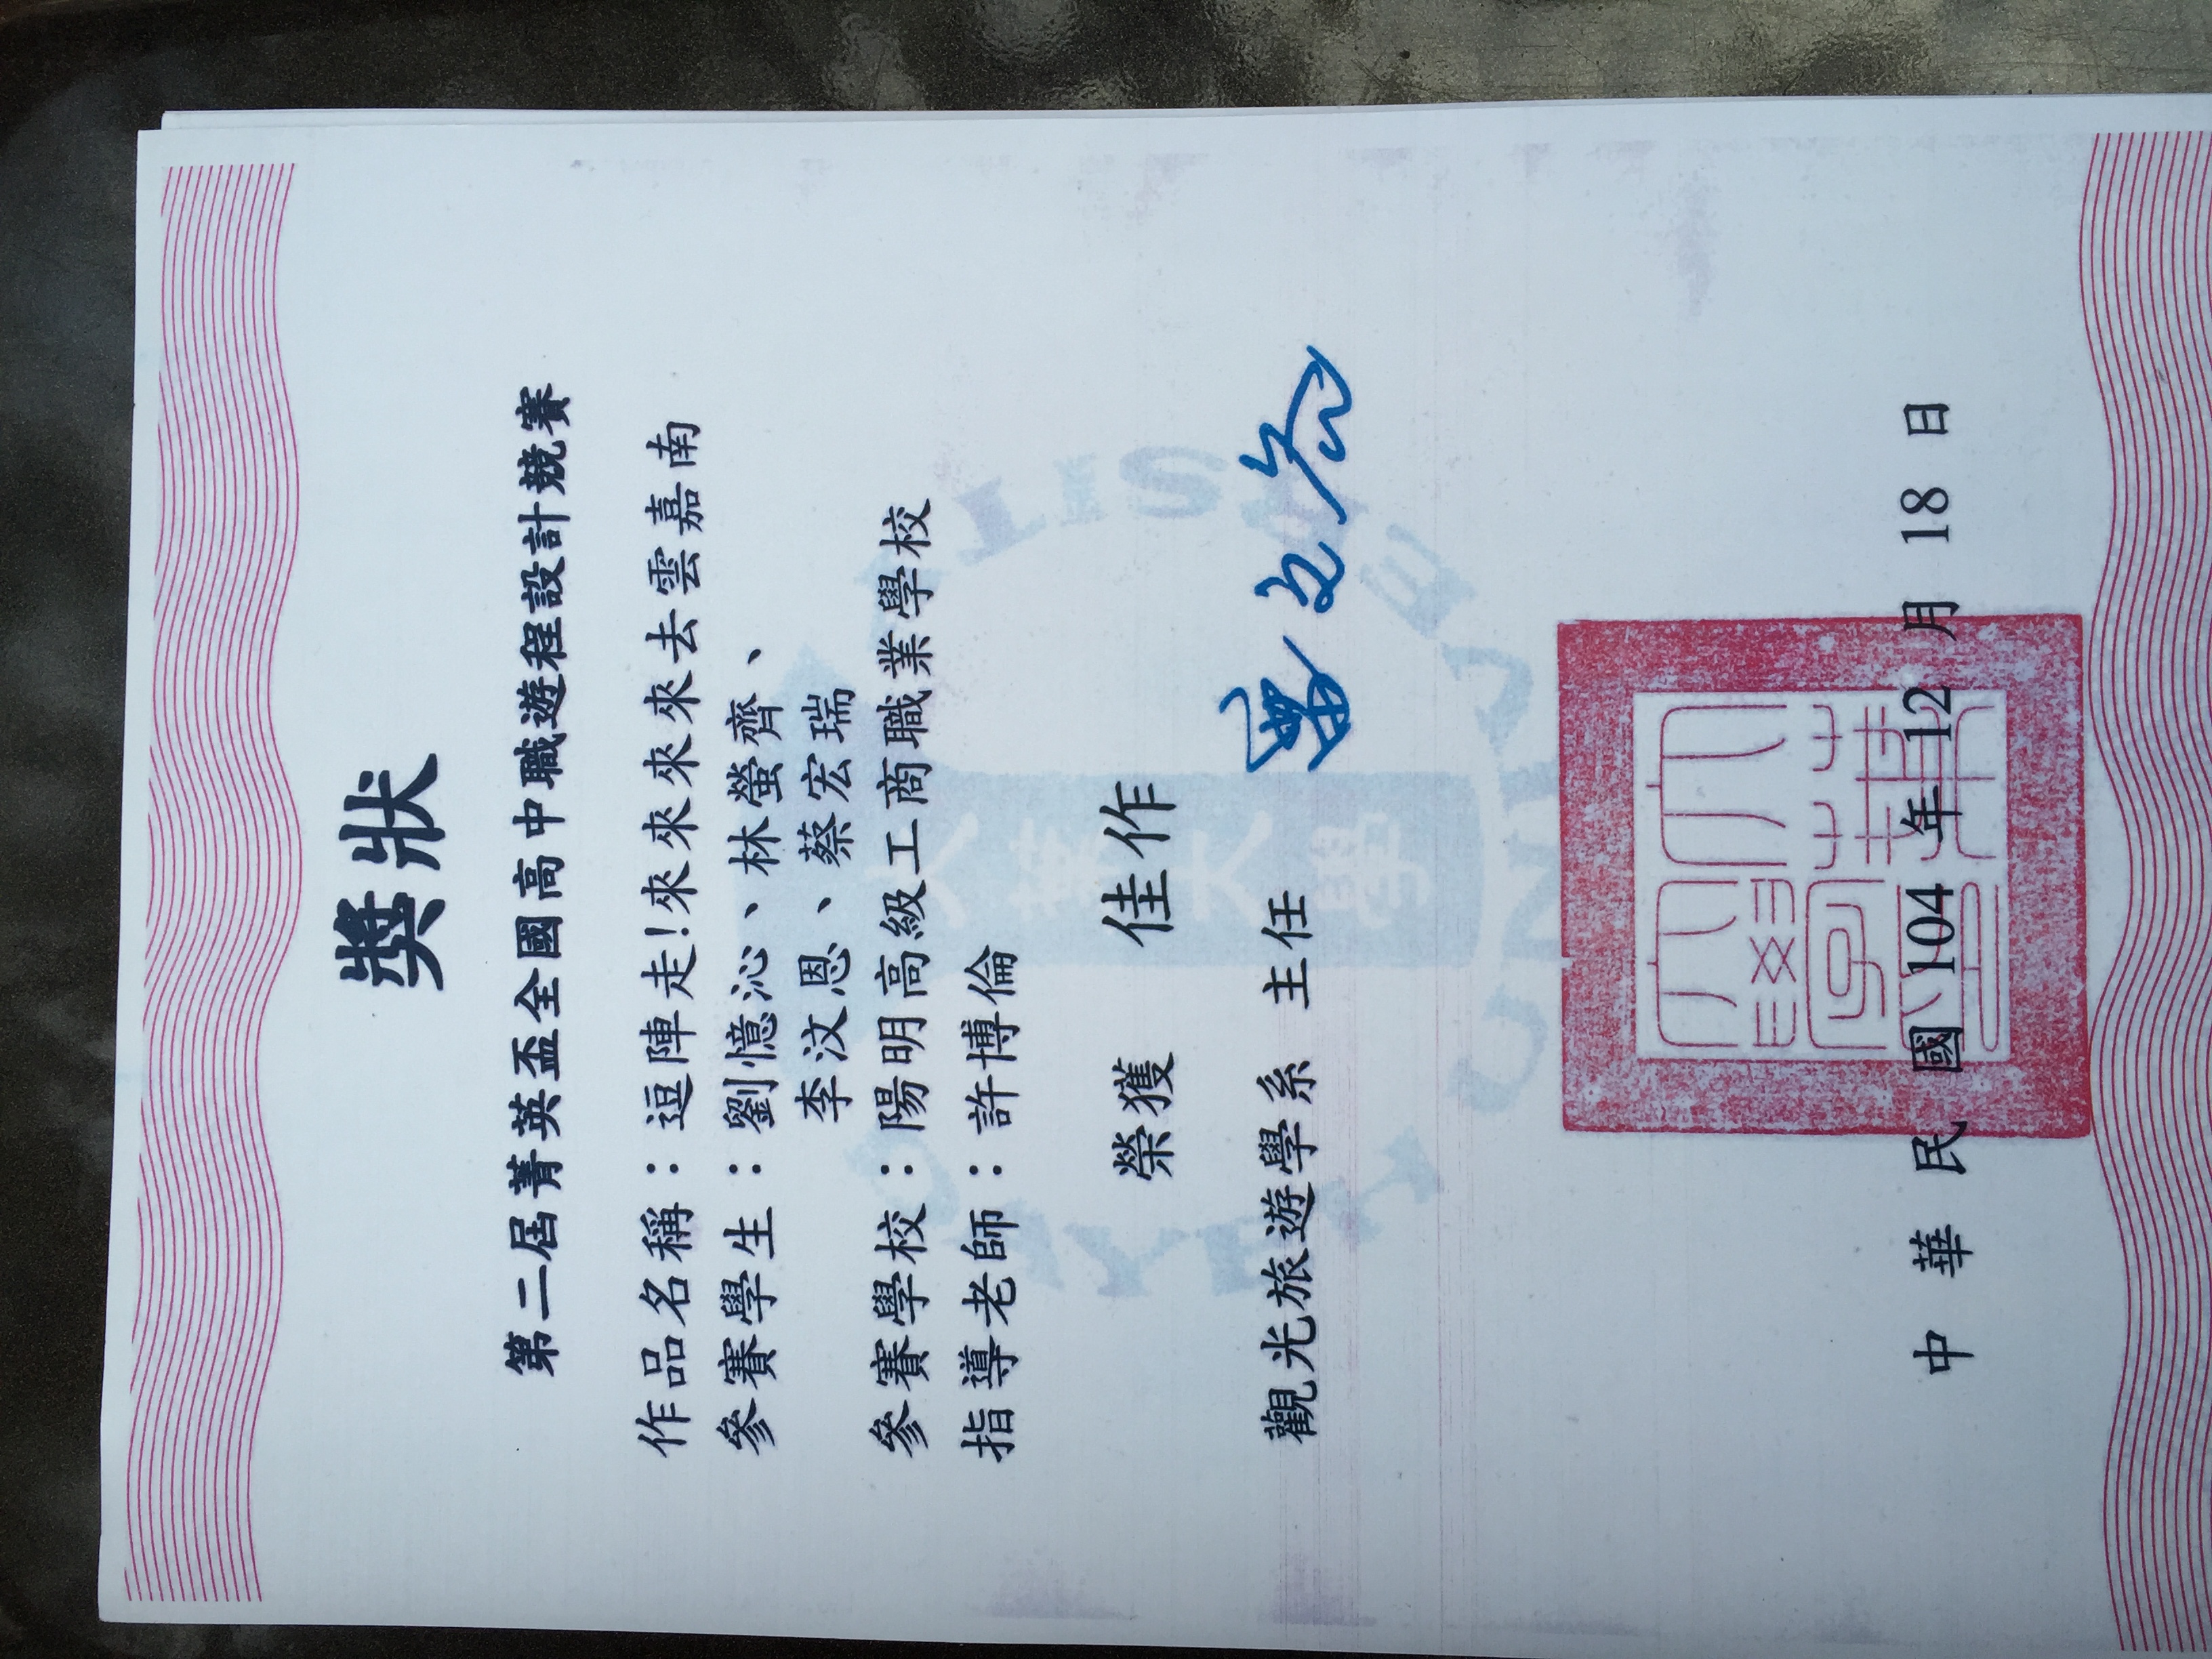 獎狀
第二屆菁英盃全國高中職遊程設計競賽
作品名稱：逗陣走!來來來來去雲嘉南
參賽學生：劉憶沁、林螢齊、
李汶恩、蔡宏瑞
參賽學校：陽明高級工商職業學校
指導老師：許博倫
榮獲 佳作
觀光旅遊學系 主任
大葉大學
中華民國 104 年 12 月 18 日